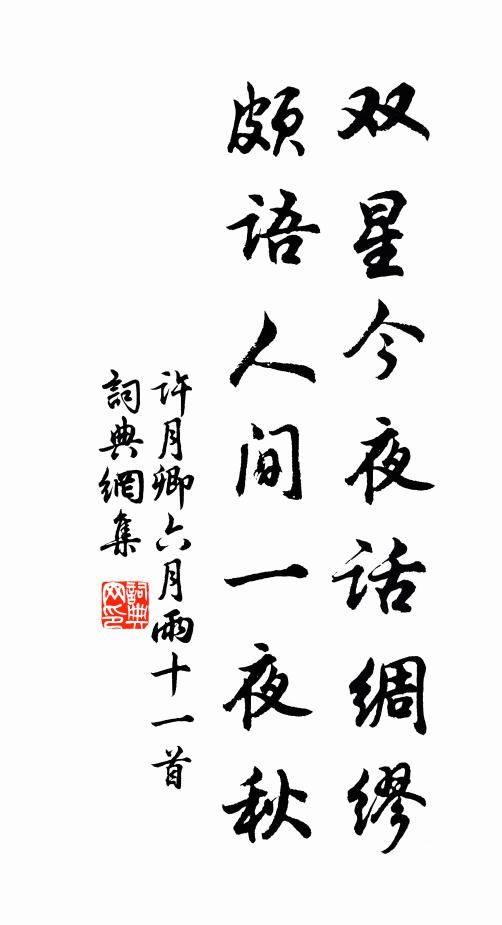 双星今夜话绸缪
颇语人间一夜秋
许月卿六月雨十一首
詞典網集
詞典
网印